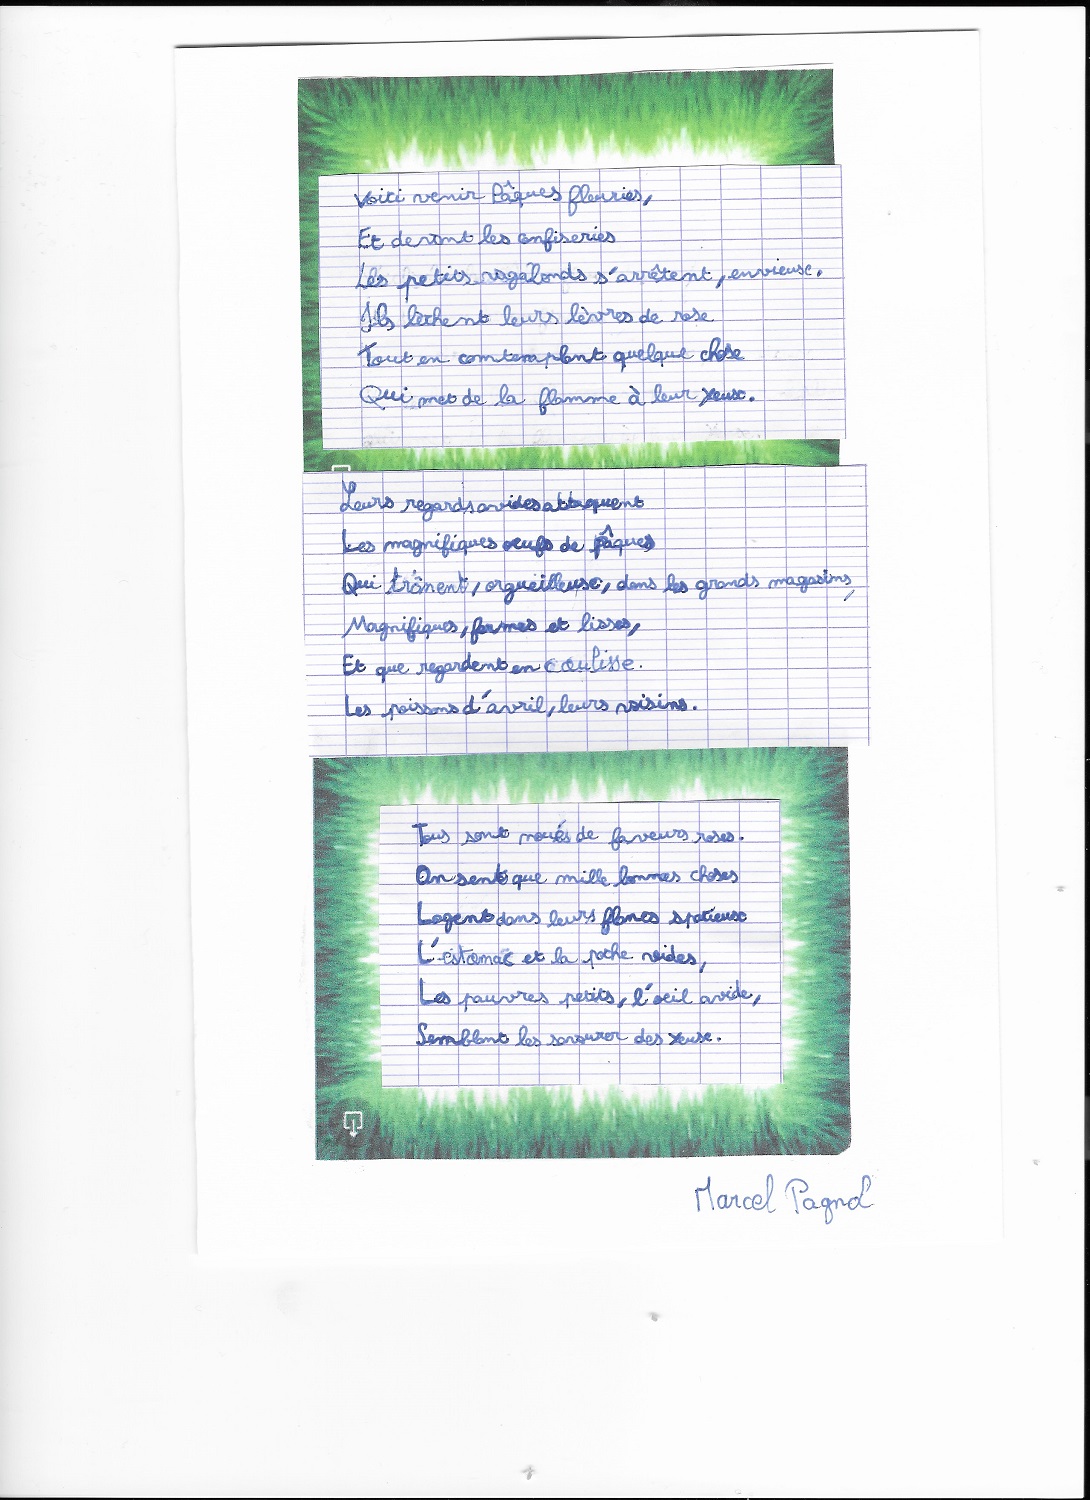 Voici venir Pâques fleuries,
Et devant les confiseries
Les petits vagabonds s'arrêtent, envieux.
Ils lèchent leurs lèvres de rose
Tout en contemplant quelque chose
Qui met de la flamme à leur yeux.
Leurs regards avides attaquent
Les magnifiques oeufs de pâques
Qui trônent, orgueilleux, dans les grands magasins,
Magnifiques, fermes et lisses,
Et que regardent en coulisse.
Les poissons d'avril, leurs voisins.
Tous sont noués de faveurs roses.
On sent que mille bonnes choses
Logent dans leurs flancs spatieux
L'estomac et la poche vides,
Les pauvres petits, l'oeil avide,
Semblent les savourer des yeux.
Marcel Pagnol